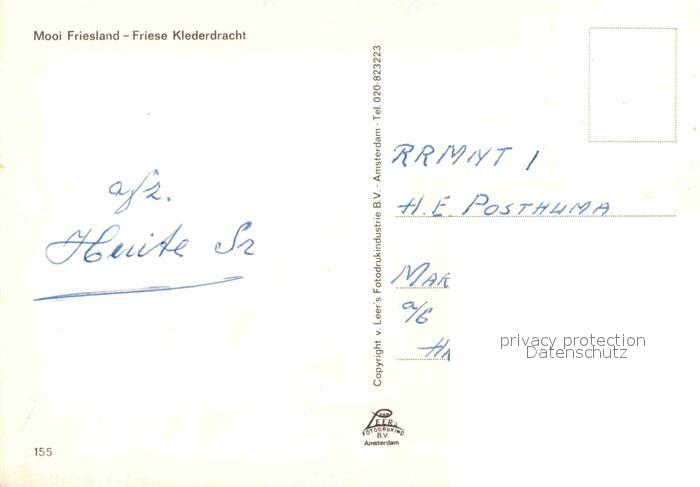 Mooi Friesland – Friese Klederdracht
afz.
Huite Sr
155
Copyright v. Leer's Fotodrukindustrie B.V. - Amsterdam - Tel. 020-823223
VAN
LEER'S
FOTODRUKIND
B.V.
Amsterdam
RRMNT 1
H.E. POSTHUMA
MAR
a/b
HA
privacy protection
Datenschutz